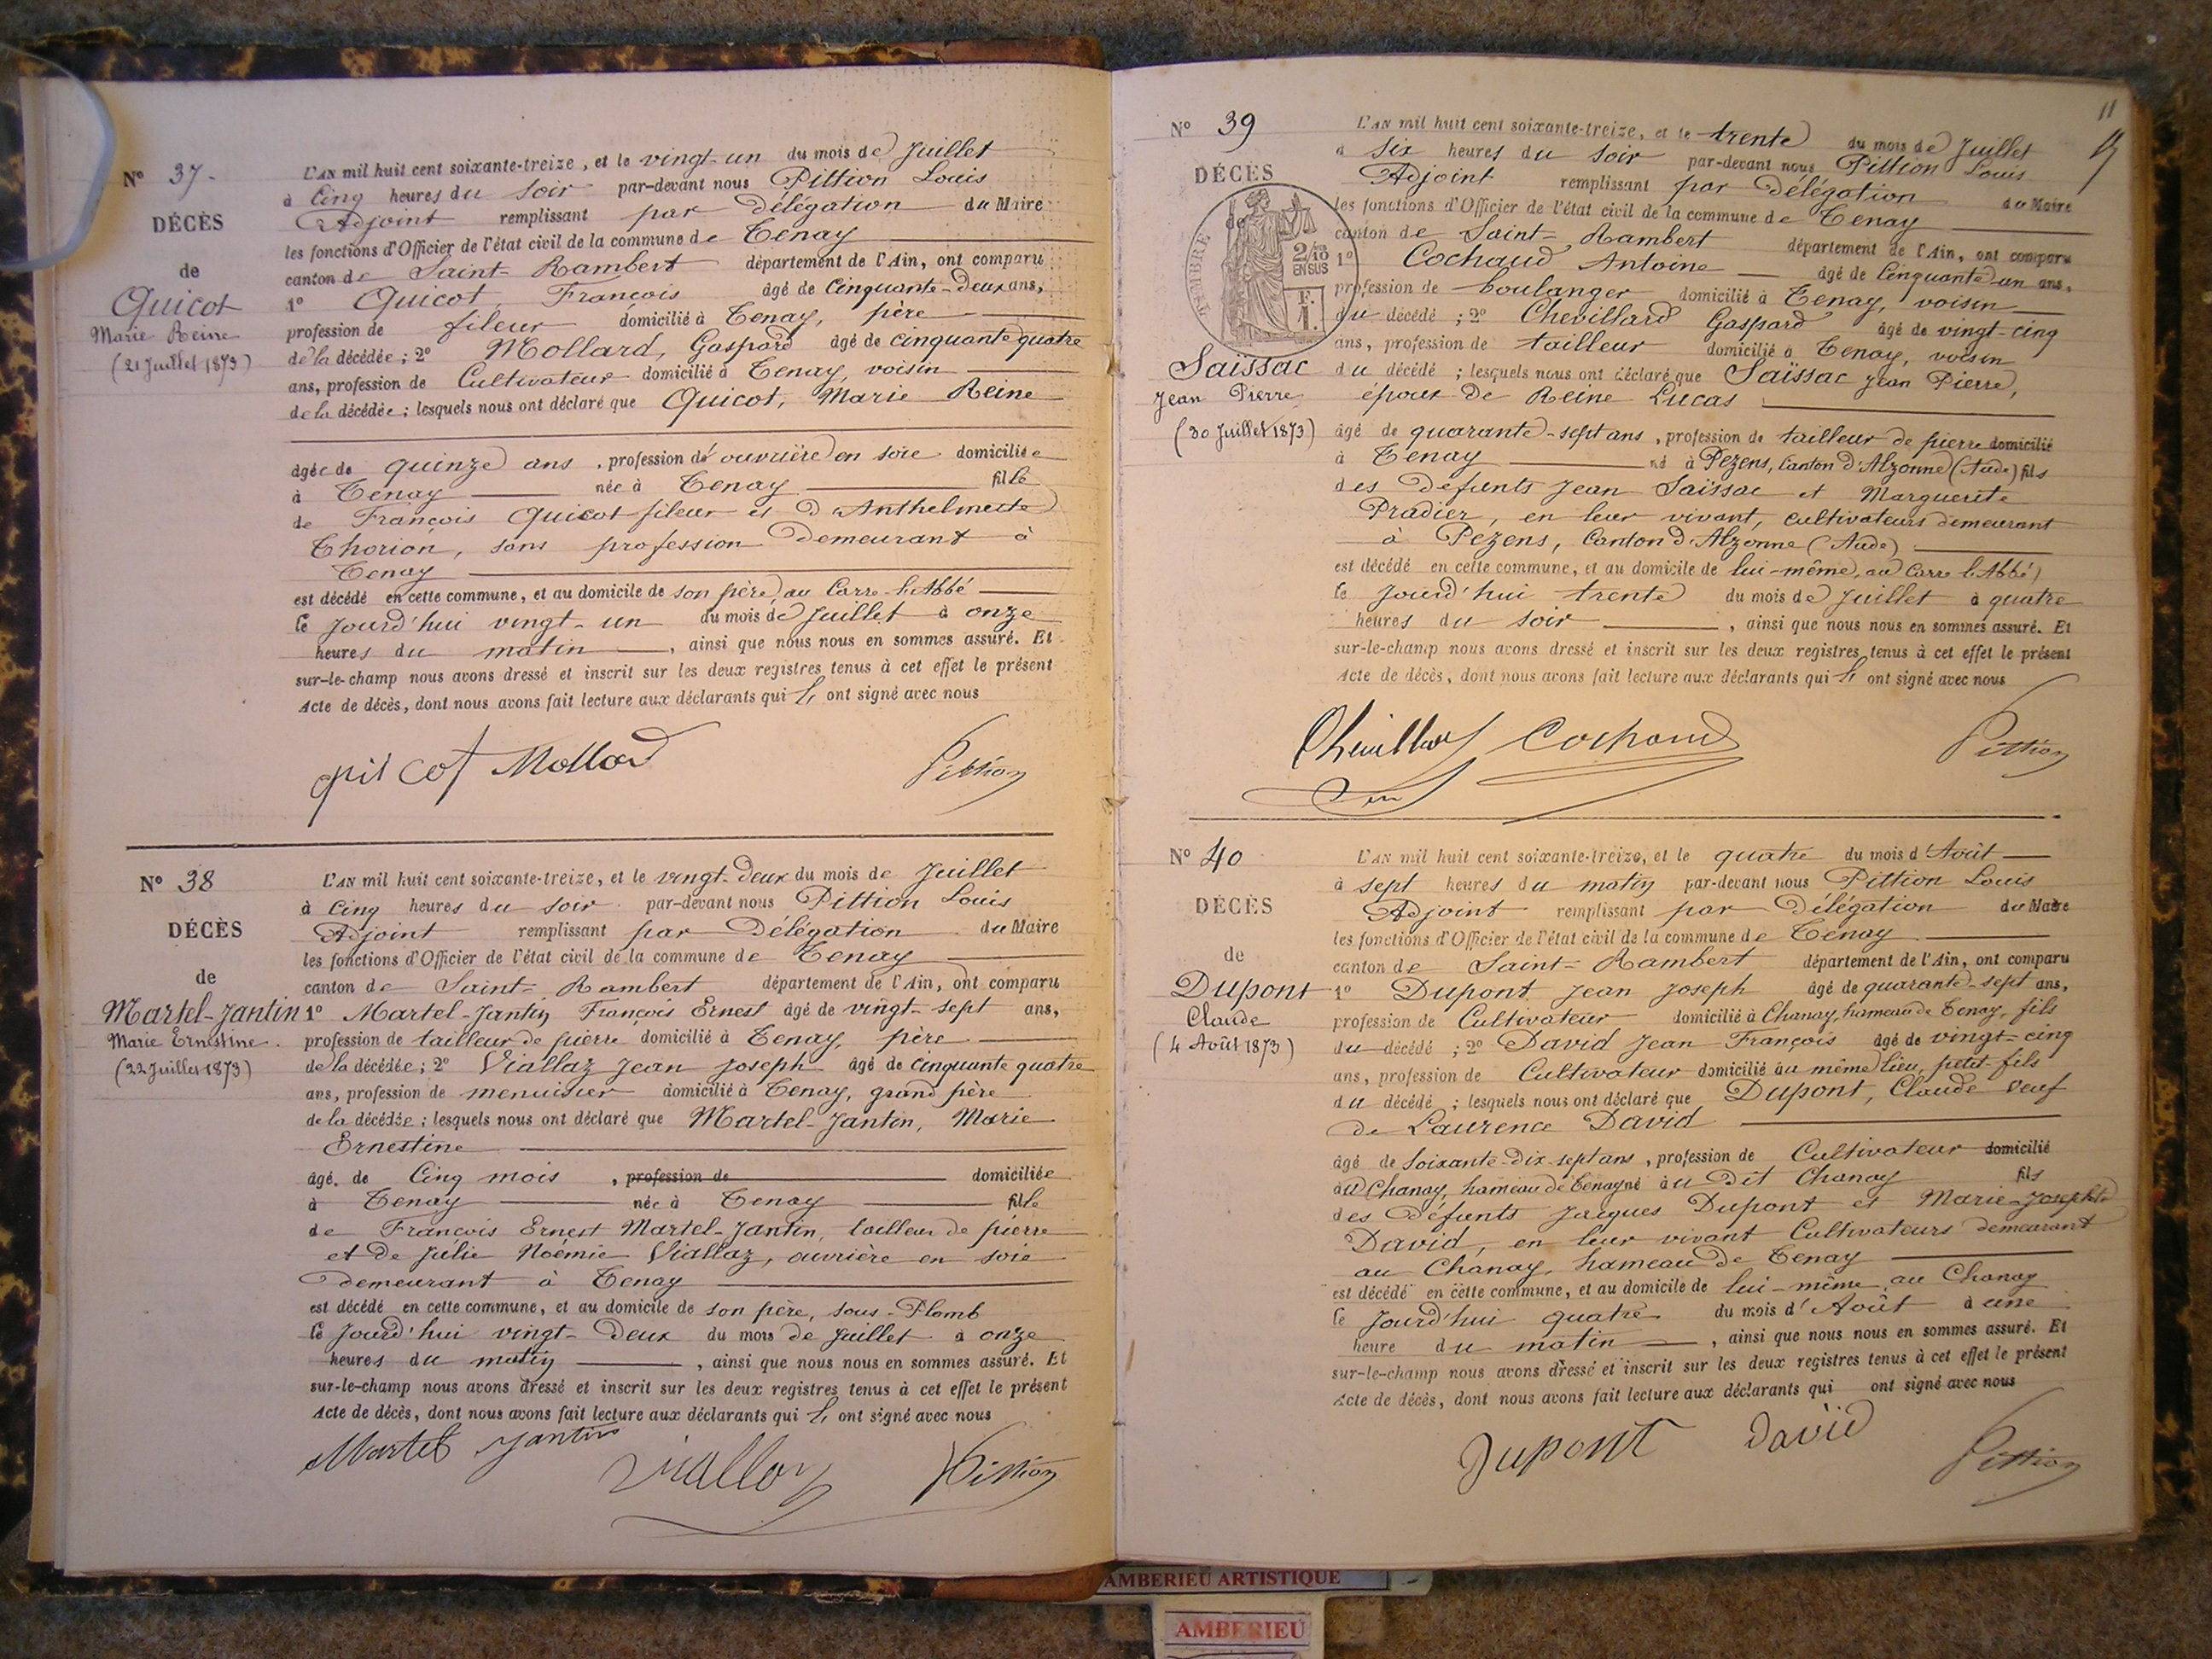 N° 37.
DÉCÈS
de
Quicot
Marie Reine
(21 Juillet 1873)
L'AN mil huit cent soixante-treize, et le vingt-un du mois de Juillet
à cinq heures du soir par-devant nous Pittion Louis
Adjoint remplissant par délégation du Maire
les fonctions d'Officier de l'état civil de la commune de Tenay
canton de Saint-Rambert département de l'Ain, ont comparu
1° Quicot, François âgé de cinquante-deux ans,
profession de fileur domicilié à Tenay, père
de la décédée ; 2° Mollard, Gaspard âgé de cinquante quatre
ans, profession de Cultivateur domicilié à Tenay, voisin
de la décédée ; lesquels nous ont déclaré que Quicot, Marie Reine
âgée de quinze ans, profession d'ouvrière en soie domiciliée
à Tenay née à Tenay fille
de François Quicot fileur et d'Anthelmette
Thorion, sans profession demeurant à
Tenay
est décédé en cette commune, et au domicile de son père, au Carre-l'Abbé
le jourd'hui vingt-un du mois de Juillet à onze
heures du matin, ainsi que nous nous en sommes assuré. Et
sur-le-champ nous avons dressé et inscrit sur les deux registres tenus à cet effet le présent
Acte de décès, dont nous avons fait lecture aux déclarants qui ont signé avec nous
quicot Mollard Pittion
N° 38
DÉCÈS
de
Martel-Jantin
Marie Ernestine.
(22 Juillet 1873)
L'AN mil huit cent soixante-treize, et le vingt-deux du mois de Juillet
à cinq heures du soir par-devant nous Pittion Louis
Adjoint remplissant par délégation du Maire
les fonctions d'Officier de l'état civil de la commune de Tenay
canton de Saint-Rambert département de l'Ain, ont comparu
1° Martel-Jantin François Ernest âgé de vingt-sept ans,
profession de tailleur de pierre domicilié à Tenay, père
de la décédée ; 2° Viallaz Jean Joseph âgé de cinquante quatre
ans, profession de menuisier domicilié à Tenay, grand père
de la décédée ; lesquels nous ont déclaré que Martel-Jantin, Marie
Ernestine
âgé. de cinq mois, profession de domiciliée
à Tenay née à Tenay fille
de François Ernest Martel-Jantin, tailleur de pierre
et de Julie Noémie Viallaz, ouvrière en soie
demeurant à Tenay
est décédé en cette commune, et au domicile de son père, sous-Plomb
le jourd'hui vingt-deux du mois de Juillet à onze
heures du matin, ainsi que nous nous en sommes assuré. Et
sur-le-champ nous avons dressé et inscrit sur les deux registres tenus à cet effet le présent
Acte de décès, dont nous avons fait lecture aux déclarants qui ont signé avec nous
Martel Jantin Viallaz Pittion
11
N° 39
DÉCÈS
de
TIMBRE
2/10 EN SUS
F. 1.
Saïssac
Jean Pierre
(30 Juillet 1873)
L'AN mil huit cent soixante-treize, et le trente du mois de Juillet
à six heures du soir par-devant nous Pittion Louis
Adjoint remplissant par délégation du Maire
les fonctions d'Officier de l'état civil de la commune de Tenay
canton de Saint-Rambert département de l'Ain, ont comparu
1° Cochaud Antoine âgé de cinquante-un ans,
profession de boulanger domicilié à Tenay, voisin
du décédé ; 2° Chevillard Gaspard âgé de vingt-cinq
ans, profession de tailleur domicilié à Tenay, voisin
du décédé ; lesquels nous ont déclaré que Saïssac Jean Pierre,
époux de Reine Lucas
âgé de quarante-sept ans, profession de tailleur de pierre domicilié
à Tenay né à Pezens, Canton d'Alzonne (Aude) fils
des défunts Jean Saïssac et Marguerite
Pradier, en leur vivant, cultivateurs demeurant
à Pezens, Canton d'Alzonne (Aude)
est décédé en cette commune, et au domicile de lui-même, au Carre l'Abbé
le jourd'hui trente du mois de Juillet à quatre
heures du soir, ainsi que nous nous en sommes assuré. Et
sur-le-champ nous avons dressé et inscrit sur les deux registres tenus à cet effet le présent
Acte de décès, dont nous avons fait lecture aux déclarants qui ont signé avec nous
Chevillard Cochaud Pittion
N° 40
DÉCÈS
de
Dupont
Claude
(4 Août 1873)
L'AN mil huit cent soixante-treize, et le quatre du mois d'Août
à sept heures du matin par-devant nous Pittion Louis
Adjoint remplissant par délégation du Maire
les fonctions d'Officier de l'état civil de la commune de Tenay
canton de Saint-Rambert département de l'Ain, ont comparu
1° Dupont Jean Joseph âgé de quarante-sept ans,
profession de Cultivateur domicilié à Chanay, hameau de Tenay, fils
du décédé ; 2° David Jean François âgé de vingt-cinq
ans, profession de Cultivateur domicilié au même lieu, petit-fils
du décédé ; lesquels nous ont déclaré que Dupont, Claude veuf
de Laurence David
âgé de soixante-dix-sept ans, profession de Cultivateur domicilié
au Chanay, hameau de Tenay né au dit Chanay fils
des défunts Jacques Dupont et Marie-Josephte
David, en leur vivant Cultivateurs demeurant
au Chanay, hameau de Tenay
est décédé en cette commune, et au domicile de lui-même, au Chanay
le jourd'hui quatre du mois d'Août à une
heure du matin, ainsi que nous nous en sommes assuré. Et
sur-le-champ nous avons dressé et inscrit sur les deux registres tenus à cet effet le présent
Acte de décès, dont nous avons fait lecture aux déclarants qui ont signé avec nous
Dupont David Pittion
AMBERIEU ARTISTIQUE
AMBERIEU